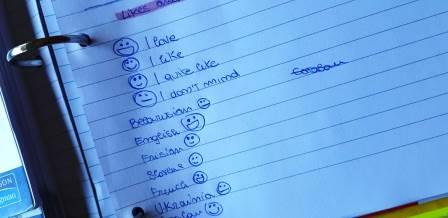 Likes
I love
I like
I quite like
I don't mind
Belarusian
English
Frisian
Slovene
French
Ukrainia
SON
gman